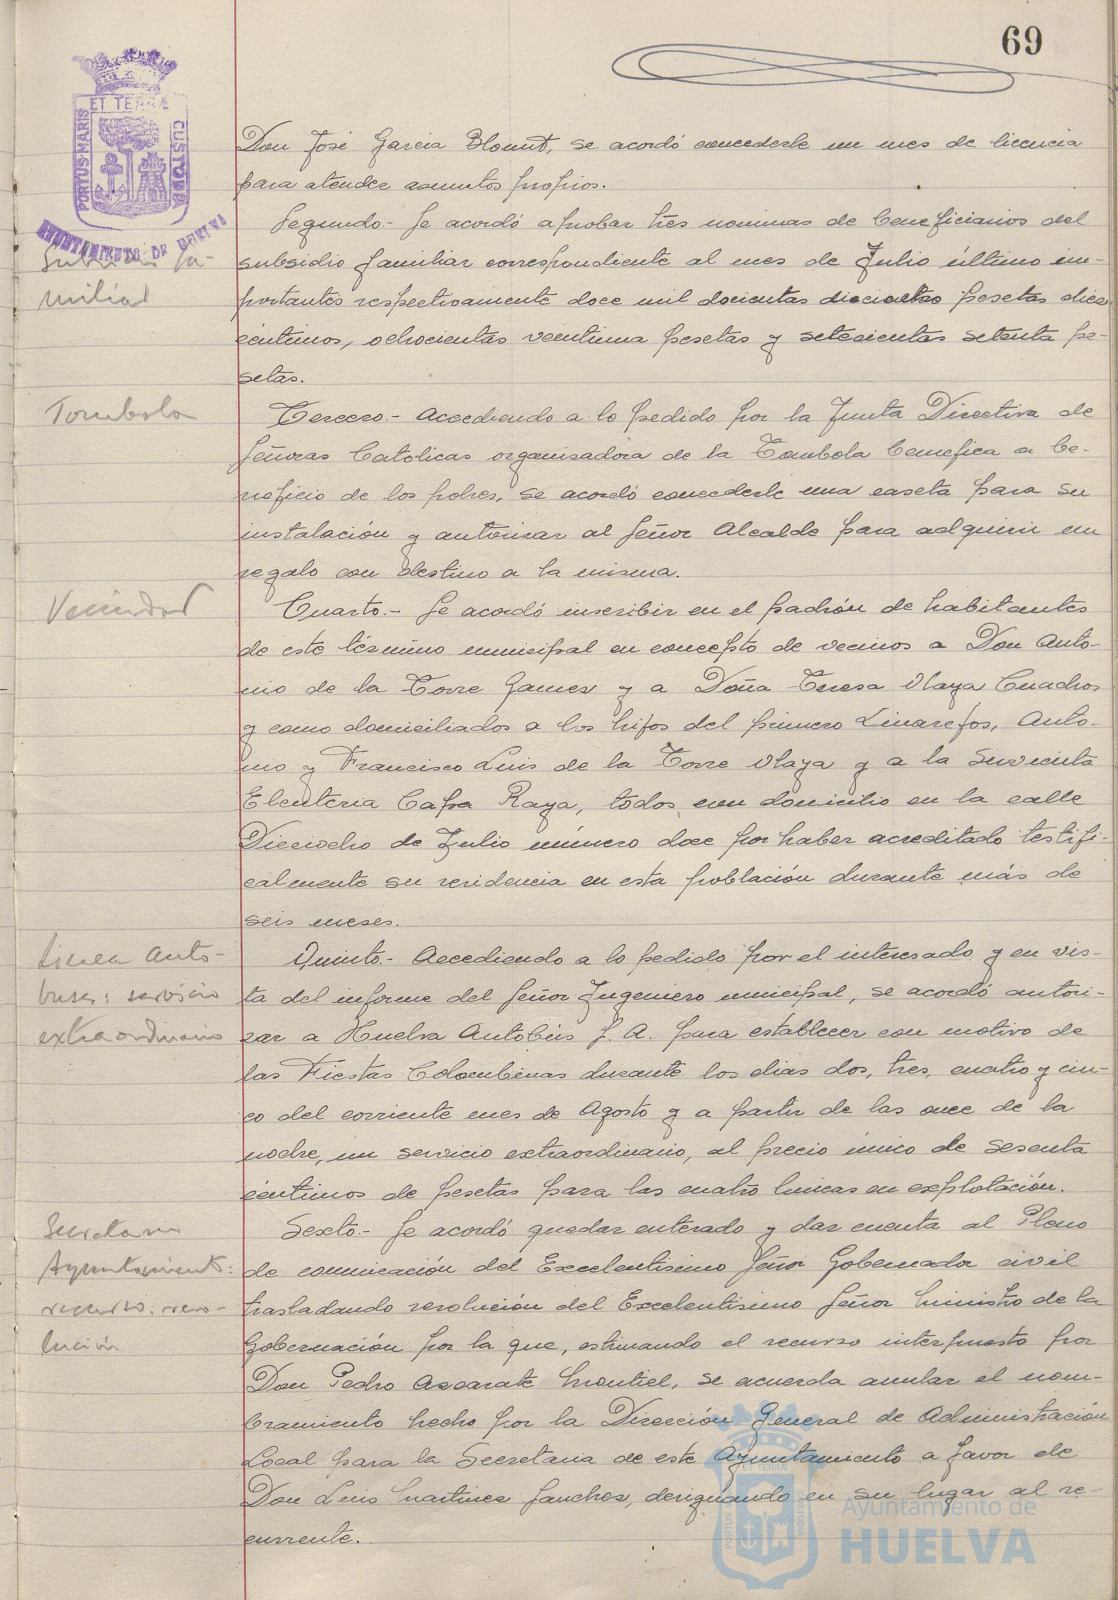 69
ET TERRÆ
PORTUS MARIS
CUSTODIA
AYUNTAMIENTO DE HUELVA
Don José Garcia Blount, se acordó concederle un mes de licencia
para atender asuntos propios.
Segundo.- Se acordó aprobar tres nominas de beneficiarios del
Subsidio Fa-
subsidio familiar correspondiente al mes de Julio último im-
miliar
portantes respectivamente doce mil docientas dieciocho pesetas diez
céntimos, ochocientas veintiuna pesetas y setecientas setenta pe-
setas.
Tombola
Tercero.- Accediendo a lo pedido por la Junta Directiva de
Señoras Católicas organisadora de la Tombola Benefica a be-
neficio de los pobres, se acordó concederle una caseta para su
instalación y autorisar al Señor Alcalde para adquirir un
regalo con destino a la misma.
Vecindad
Cuarto.- Se acordó inscribir en el padrón de habitantes
de este término municipal en concepto de vecinos a Don Anto-
nio de la Torre Gamez y a Doña Teresa Olaya Cuadros
y como domiciliados a los hijos del primero Linarejos, Anto-
nio y Francisco Luis de la Torre Olaya y a la sirvienta
Eleuteria Capa Raya, todos con domicilio en la calle
Dieciocho de Julio número doce por haber acreditado testifi-
calmente su residencia en esta población durante más de
seis meses.
Linea Auto-
Quinto.- Accediendo a lo pedido por el interesado y en vis-
buses: servicio
ta del informe del Señor Ingeniero municipal, se acordó autori-
extraordinario
zar a Huelva Autobús S. A. para establecer con motivo de
las Fiestas Colombinas durante los dias dos, tres, cuatro y cin-
co del corriente mes de Agosto y a partir de las once de la
noche, un servicio extraordinario, al precio único de sesenta
céntimos de pesetas para las cuatro lineas en explotación.
Secretario
Sexto.- Se acordó quedar enterado y dar cuenta al Pleno
Ayuntamiento:
de comunicación del Excelentisimo Señor Gobernador civil
recurso: reso-
trasladando resolución del Excelentisimo Señor Ministro de la
lución
Gobernación por la que, estimando el recurso interpuesto por
Don Pedro Ascarate Montiel, se acuerda anular el nom-
bramiento hecho por la Dirección General de Administración
Local para la Secretaria de este Ayuntamiento a favor de
Don Luis Martines Sanches, designando en su lugar al re-
currente.
Ayuntamiento de
HUELVA